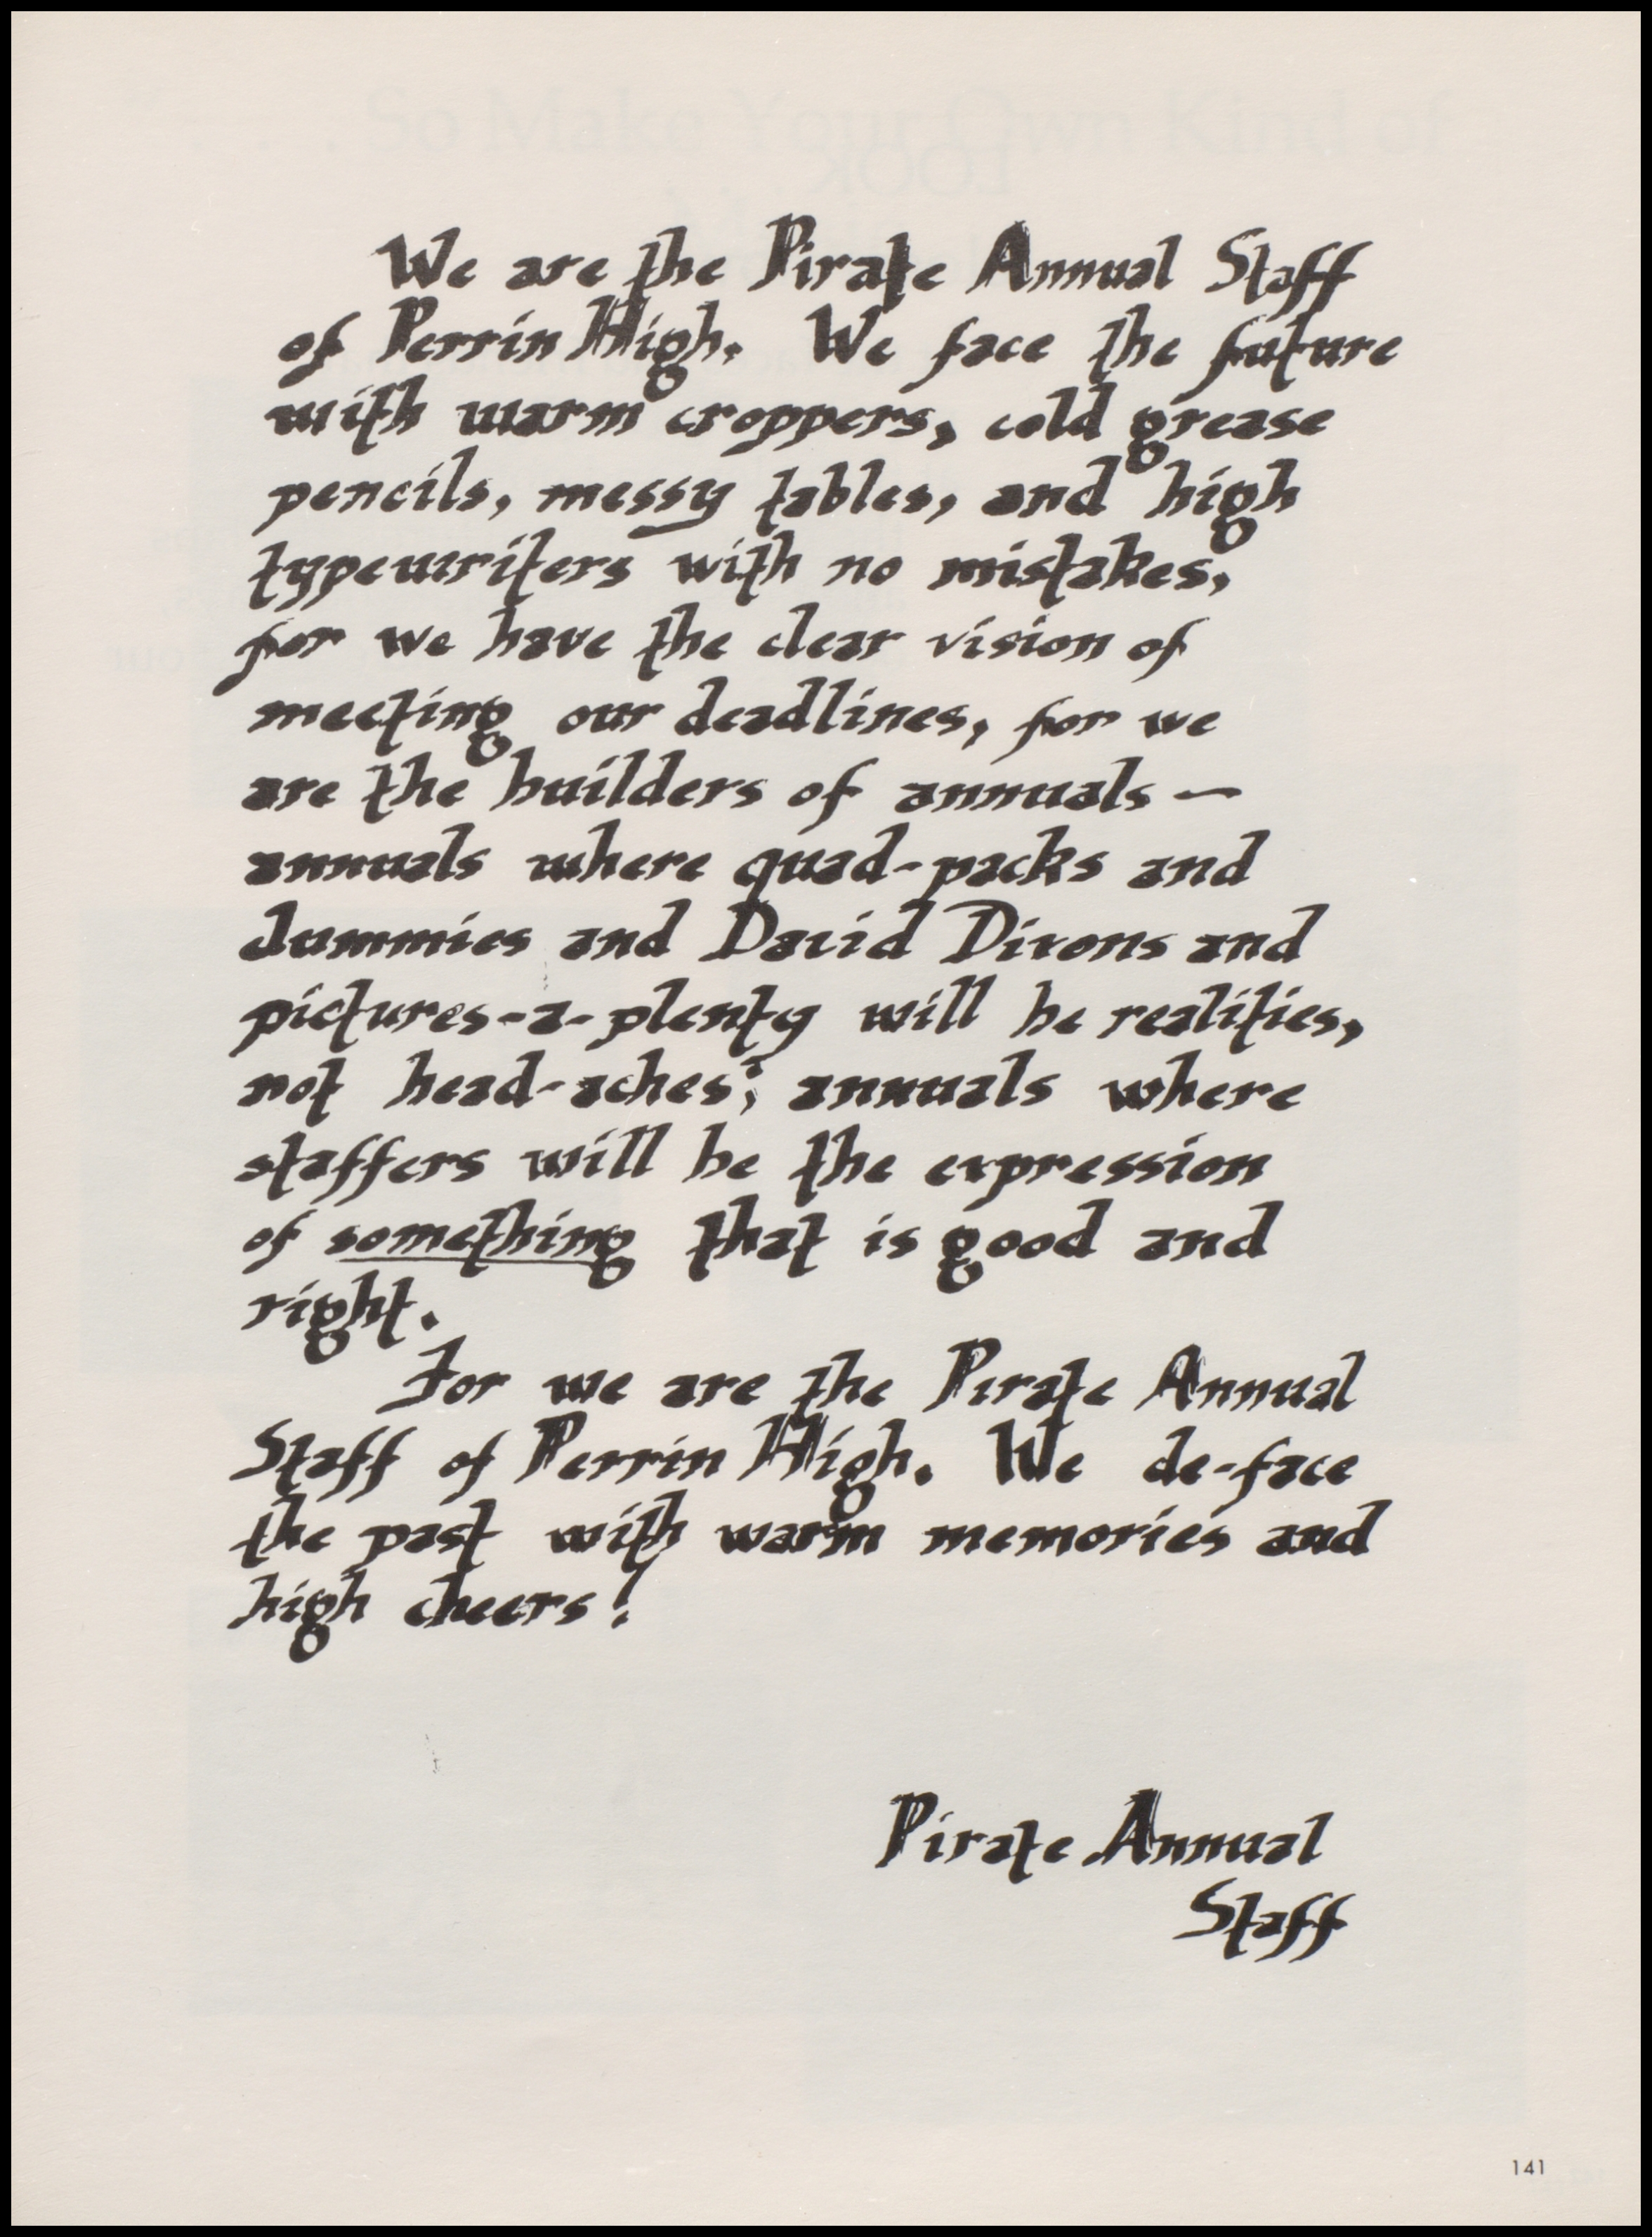 We are the Pirate Annual Staff
of Perrin High. We face the future
with warm croppers, cold grease
pencils, messy tables, and high
typewriters with no mistakes,
for we have the clear vision of
meeting our deadlines, for we
are the builders of annuals —
annuals where quad-packs and
dummies and David Dixons and
pictures-a-plenty will be realities,
not head-aches; annuals where
staffers will be the expression
of something that is good and
right.
For we are the Pirate Annual
Staff of Perrin High. We de-face
the past with warm memories and
high cheers!
Pirate Annual
Staff
141